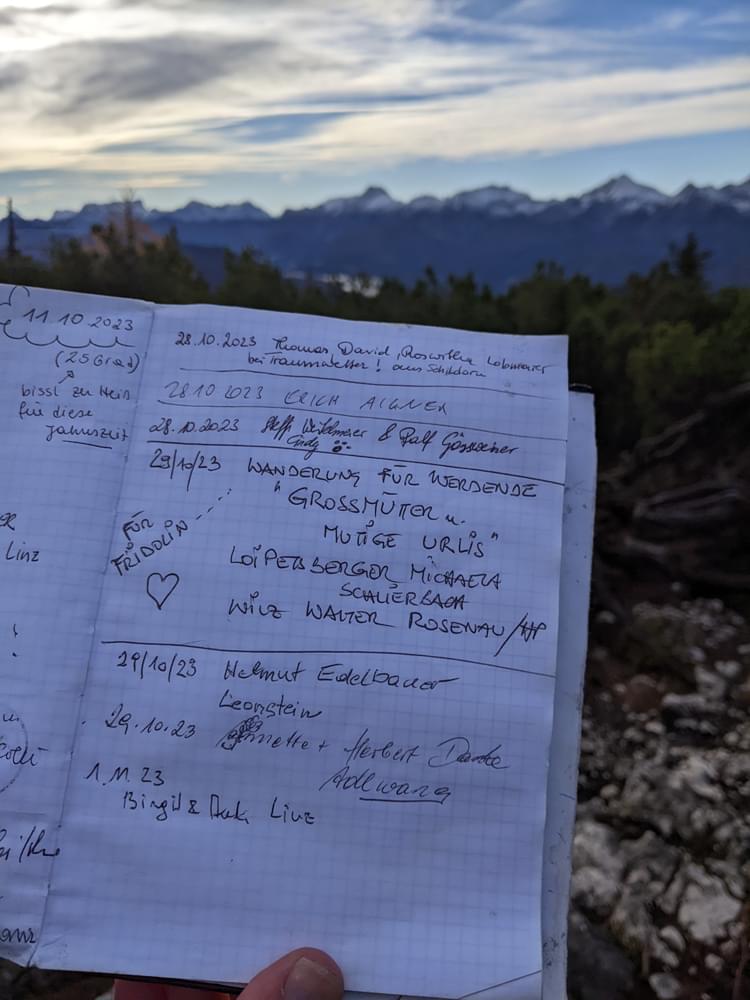 11.10.2023
(25 Grad)
bissl zu
für diese
Jahreszeit
Linz
28.10.2023 Thomas, David, Roswitha
bei Traumwetter! aus
28.10.2023 ERICH AIGNER
28.10.2023 Steffi & Ralf
Cindy
29/10/23 WANDERUNG FÜR WERDENDE
"GROSSMÜTTER u.
MUTIGE URLIS"
FÜR
FRIDOLIN
LOIPERSBERGER MICHAELA
SCHLIERBACH
WINZ WALTER ROSENAU/HP
29/10/23 Helmut Edelbauer
Leonstein
29.10.23 Annette + Herbert
Adlwang
1.11.23
Birgit & Linz